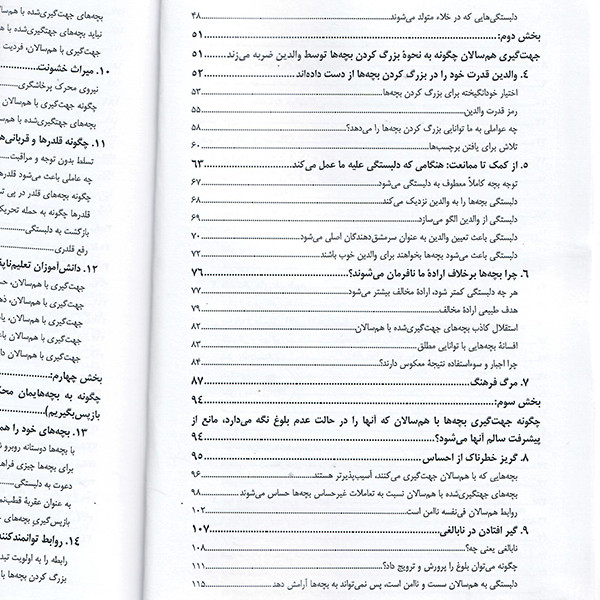 دلبستگی‌هایی که در خلاء متولد می‌شوند ۴۸
بخش دوم: ۵۱
جهت‌گیری هم‌سالان چگونه به نحوهٔ بزرگ کردن بچه‌ها توسط والدین ضربه می‌زند ۵۱
۴. والدین قدرت خود را در بزرگ کردن بچه‌ها از دست داده‌اند ۵۲
اختیار خودانگیخته برای بزرگ کردن بچه‌ها ۵۳
رمز قدرت والدین ۵۵
چه عواملی به ما توانایی بزرگ کردن بچه‌ها را می‌دهد؟ ۵۸
تلاش برای یافتن برچسب‌ها ۶۰
۵. از کمک تا ممانعت: هنگامی که دلبستگی علیه ما عمل می‌کند ۶۳
توجه بچه کاملاً معطوف به دلبستگی می‌شود ۶۷
دلبستگی بچه‌ها را به والدین نزدیک می‌کند ۶۸
دلبستگی از والدین الگو می‌سازد ۶۹
دلبستگی باعث تعیین والدین به عنوان سرمشق‌دهندگان اصلی می‌شود ۷۰
دلبستگی باعث می‌شود بچه‌ها بخواهند برای والدین خوب باشند ۷۲
۶. چرا بچه‌ها برخلاف ارادهٔ ما نافرمان می‌شوند؟ ۷۶
هر چه دلبستگی کمتر شود، ارادهٔ مخالف بیشتر می‌شود ۷۷
هدف طبیعی ارادهٔ مخالف ۷۹
استقلال کاذب بچه‌های جهت‌گیری‌شده با هم‌سالان ۸۲
افسانهٔ بچه‌هایی با توانایی مطلق ۸۳
چرا اجبار و سوءاستفاده نتیجهٔ معکوس دارند؟ ۸۴
۷. مرگ فرهنگ ۸۷
بخش سوم: ۹۴
چگونه جهت‌گیری بچه‌ها با هم‌سالان که آنها را در حالت عدم بلوغ نگه می‌دارد، مانع از
پیشرفت سالم آنها می‌شود؟ ۹۴
۸. گریز خطرناک از احساس ۹۵
بچه‌هایی که با هم‌سالان جهت‌گیری می‌کنند، آسیب‌پذیرتر هستند ۹۶
بچه‌های جهت‌گیری‌شده با هم‌سالان نسبت به تعاملات غیرحساس بچه‌ها حساس می‌شوند ۹۸
روابط هم‌سالان فی‌نفسه ناامن است ۱۰۲
۹. گیر افتادن در نابالغی ۱۰۷
نابالغی یعنی چه؟ ۱۰۸
چگونه می‌توان بلوغ را پرورش و ترویج داد؟ ۱۱۱
دلبستگی به هم‌سالان سست و ناامن است، پس نمی‌تواند به بچه‌ها آرامش دهد ۱۱۵
بچه‌های جهت‌گیری‌شده با هم‌سالان
نباید بچه‌های جهت‌گیری‌شده
جهت‌گیری با هم‌سالان، فردیت
۱۰. میراث خشونت
نیروی محرک پرخاشگری
چگونه جهت‌گیری با هم‌سالان
بچه‌های جهتگیری‌شده با هم‌سالان
۱۱. چگونه قلدرها و قربانی‌ها
تسلط بدون توجه و مراقبت
چه عاملی باعث می‌شود قلدرها
چگونه بچه‌های قلدر در پی
قلدرها چگونه به حمله تحریک
بازگشت به دلبستگی
رفع قلدری
۱۲. دانش‌آموزان تعلیم‌ناپذ
جهت‌گیری با هم‌سالان،
جهت‌گیری با هم‌سالان،
جهت‌گیری با هم‌سالان،
جهت‌گیری با هم‌سالان
جهت‌گیری با هم‌سالان
بخش چهارم:
چگونه به بچه‌هایمان
بازپس‌بگیریم)
۱۳. بچه‌های خود را
با بچه‌ها دوستانه روبرو
برای بچه‌ها چیزی
دعوت به دلبستگی
به عنوان عقربهٔ
بازپس‌گیری بچه‌های
۱۴. روابط توانمندکننده
رابطه را به اولویت
بزرگ کردن بچه‌ها با